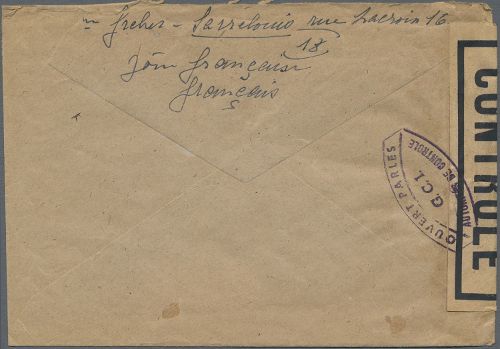 Sarrelouis rue Lacroix 16
18
Zone française
français
CONTROLE
OUVERT PAR LES
G.C.L
AUTORITÉS DE CONTROLE